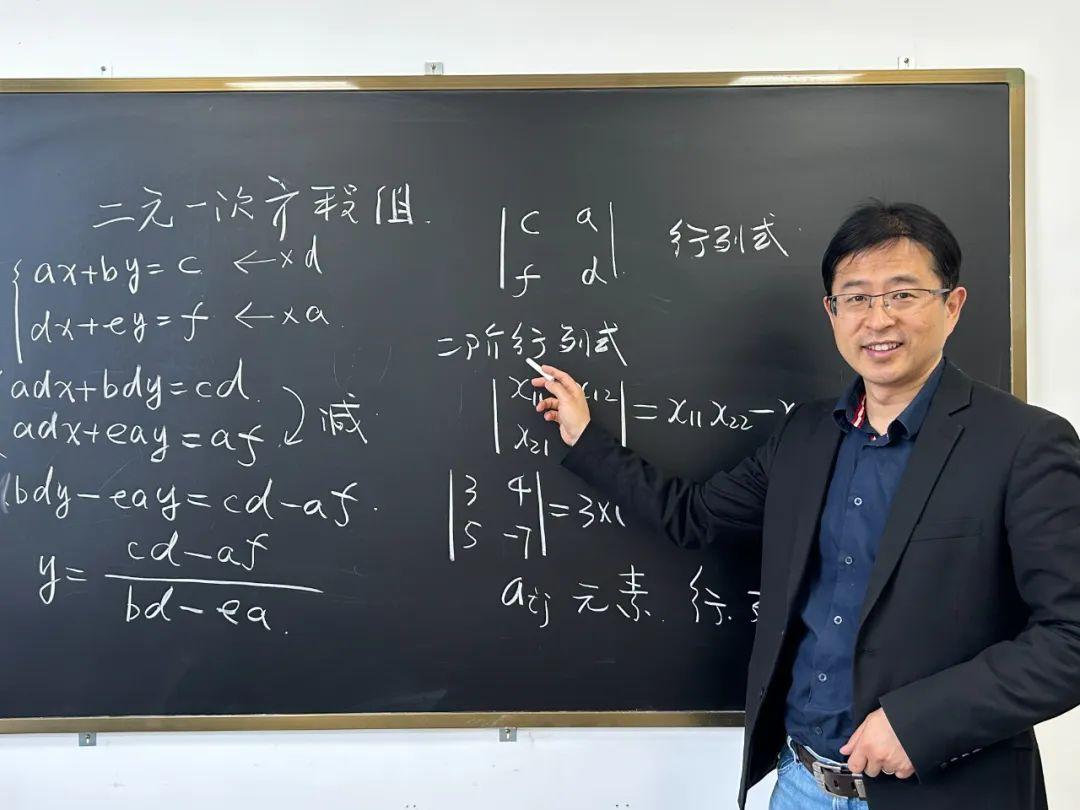 二元一次方程组.
ax+by=c ←×d
dx+ey=f ←×a
adx+bdy=cd.
adx+eay=af. 减.
bdy-eay=cd-af.
y= cd-af
bd-ea.
c a
f d 行列式.
二阶行列式
x₁₁ x₁₂
x₂₁ =x₁₁x₂₂-
3 4
5 -7 =3×(
aᵢⱼ 元素. 行.